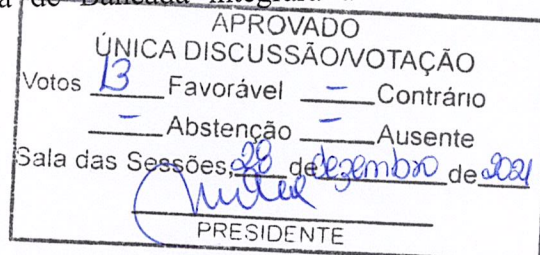 de Bancada integrará
APROVADO
ÚNICA DISCUSSÃO/VOTAÇÃO
Votos 13 Favorável - Contrário
- Abstenção - Ausente
Sala das Sessões, 28 de dezembro de 2021
PRESIDENTE